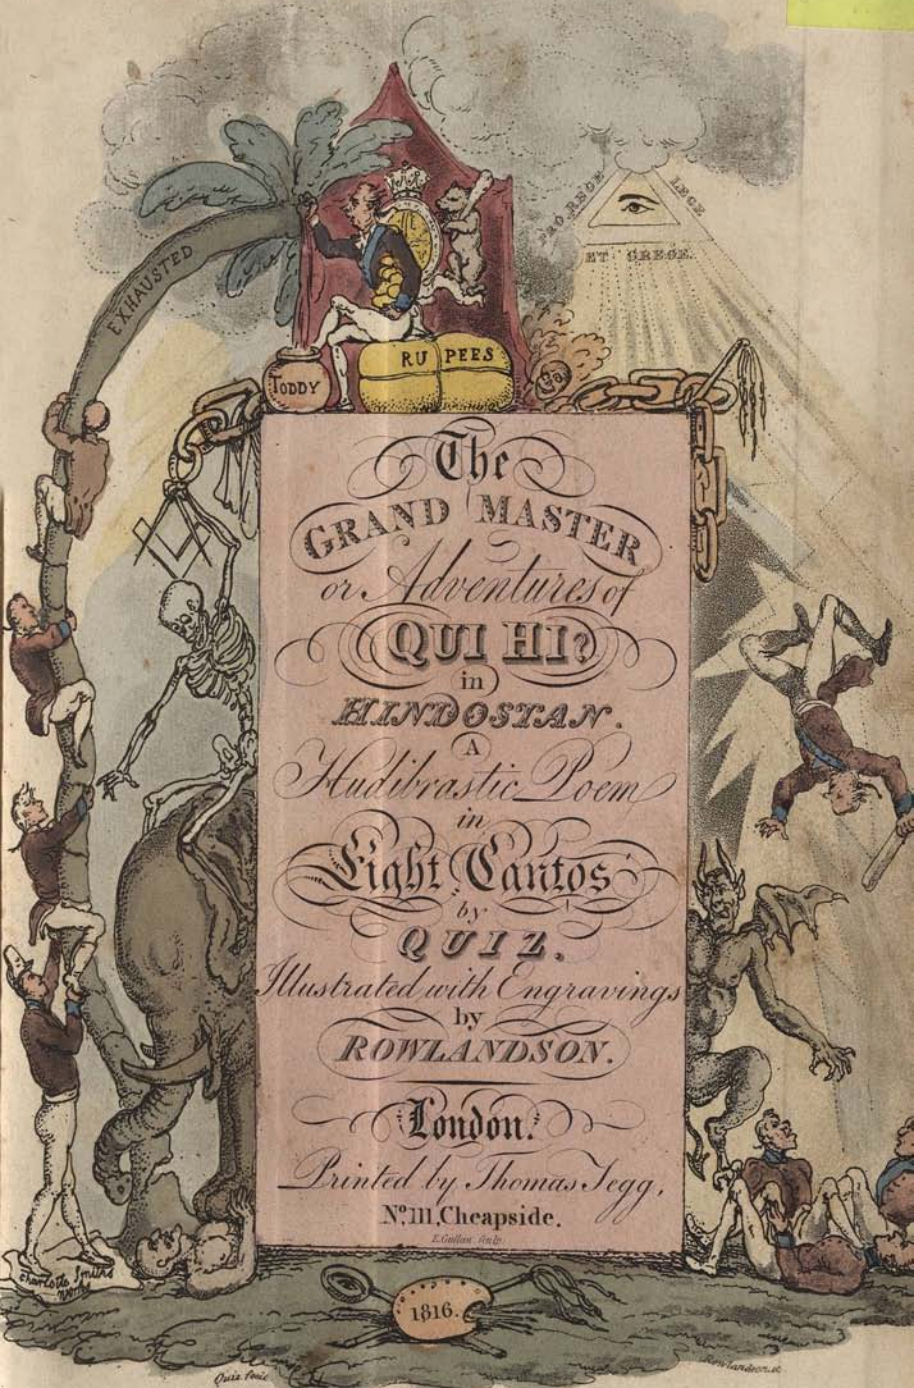 PRO REGE
LEGE
ET GREGE.
EXHAUSTED
RUPEES
TODDY
The
GRAND MASTER
or Adventures of
QUI HI?
in
HINDOSTAN.
A
Hudibrastic Poem
in
Eight Cantos
by
QUIZ.
Illustrated with Engravings
by
ROWLANDSON.
London.
Printed by Thomas Tegg,
No. 111, Cheapside.
Charlotte Smiths
1816.
Quiz
Rowlandson